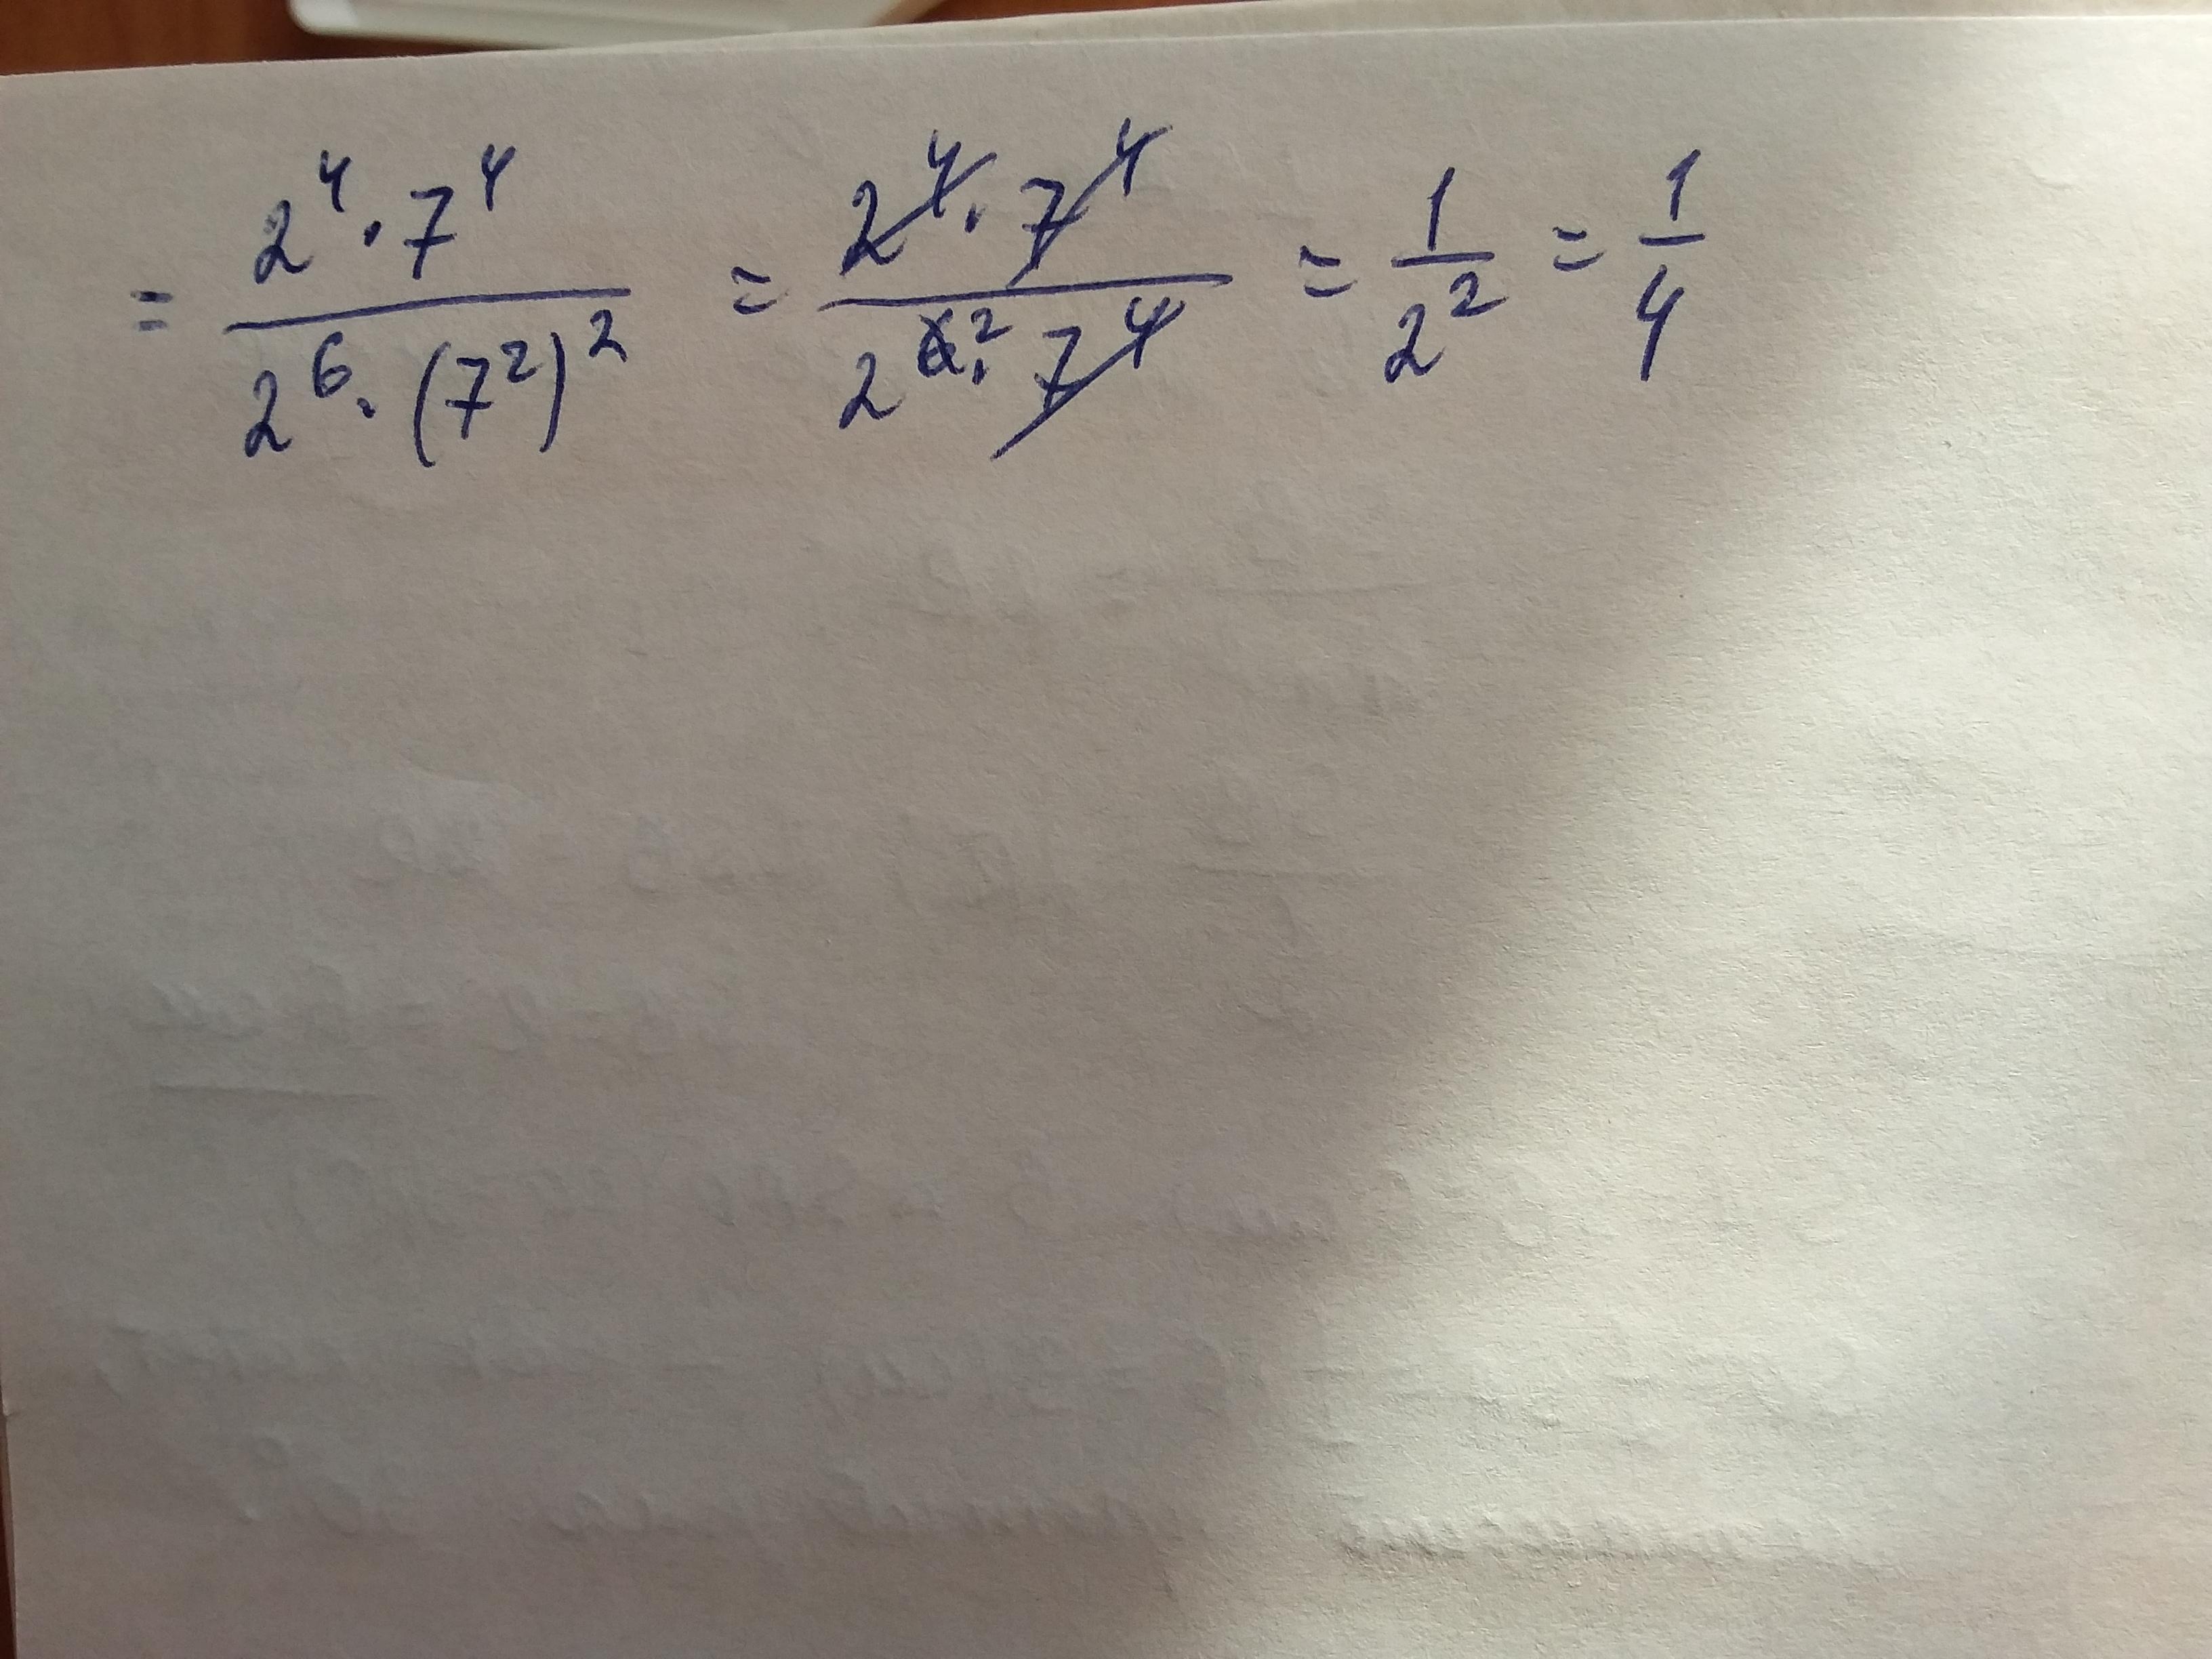 = 2⁴·7⁴ / 2⁶·(7²)² = 2⁴·7⁴ / 2⁶ ²·7⁴ = 1/2² = 1/4